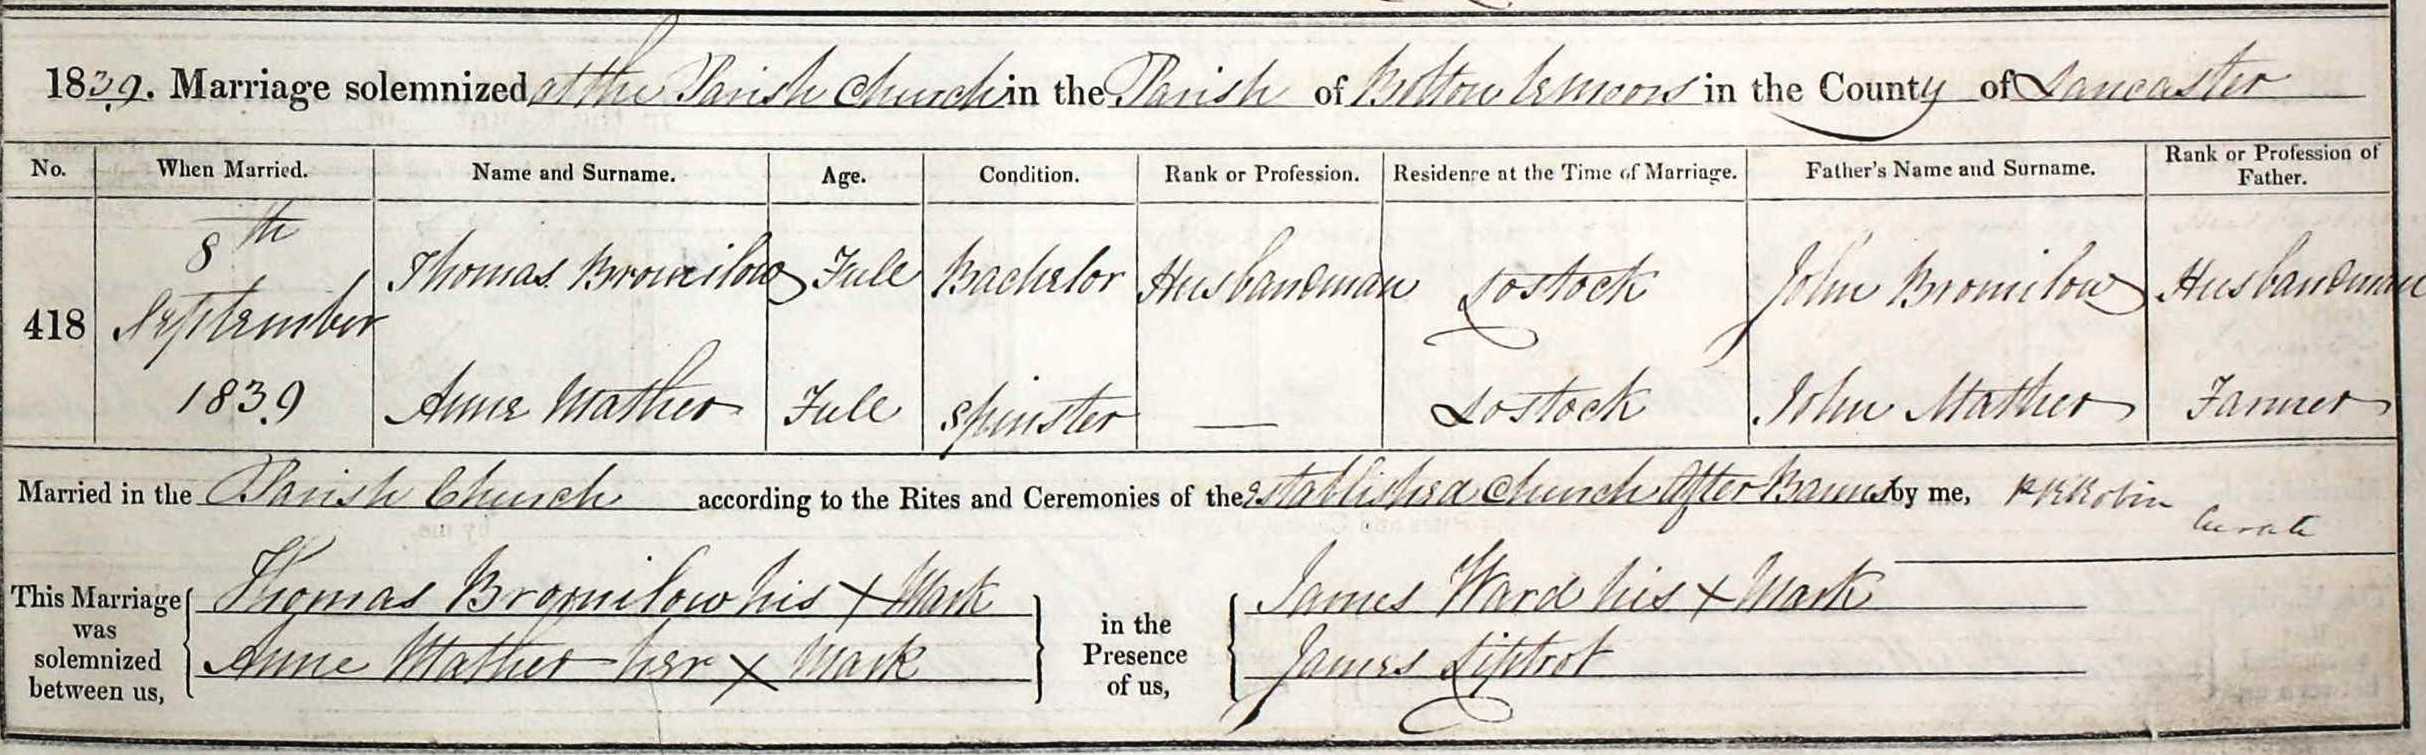 1839. Marriage solemnized at the Parish Church in the Parish of Bolton le moors in the County of Lancaster
No. When Married. Name and Surname. Age. Condition. Rank or Profession. Residence at the Time of Marriage. Father's Name and Surname. Rank or Profession of Father.
418 8th September 1839 Thomas Bromilow Full Bachelor Husbandman Lostock John Bromilow Husbandman
Anne Mather Full Spinster — Lostock John Mather Farmer
Married in the Parish Church according to the Rites and Ceremonies of the Established Church After Banns by me, Robin Curate
This Marriage was solemnized between us, Thomas Bromilow his X Mark in the Presence of us, James Ward his X Mark
Anne Mather her X Mark James Liptrot